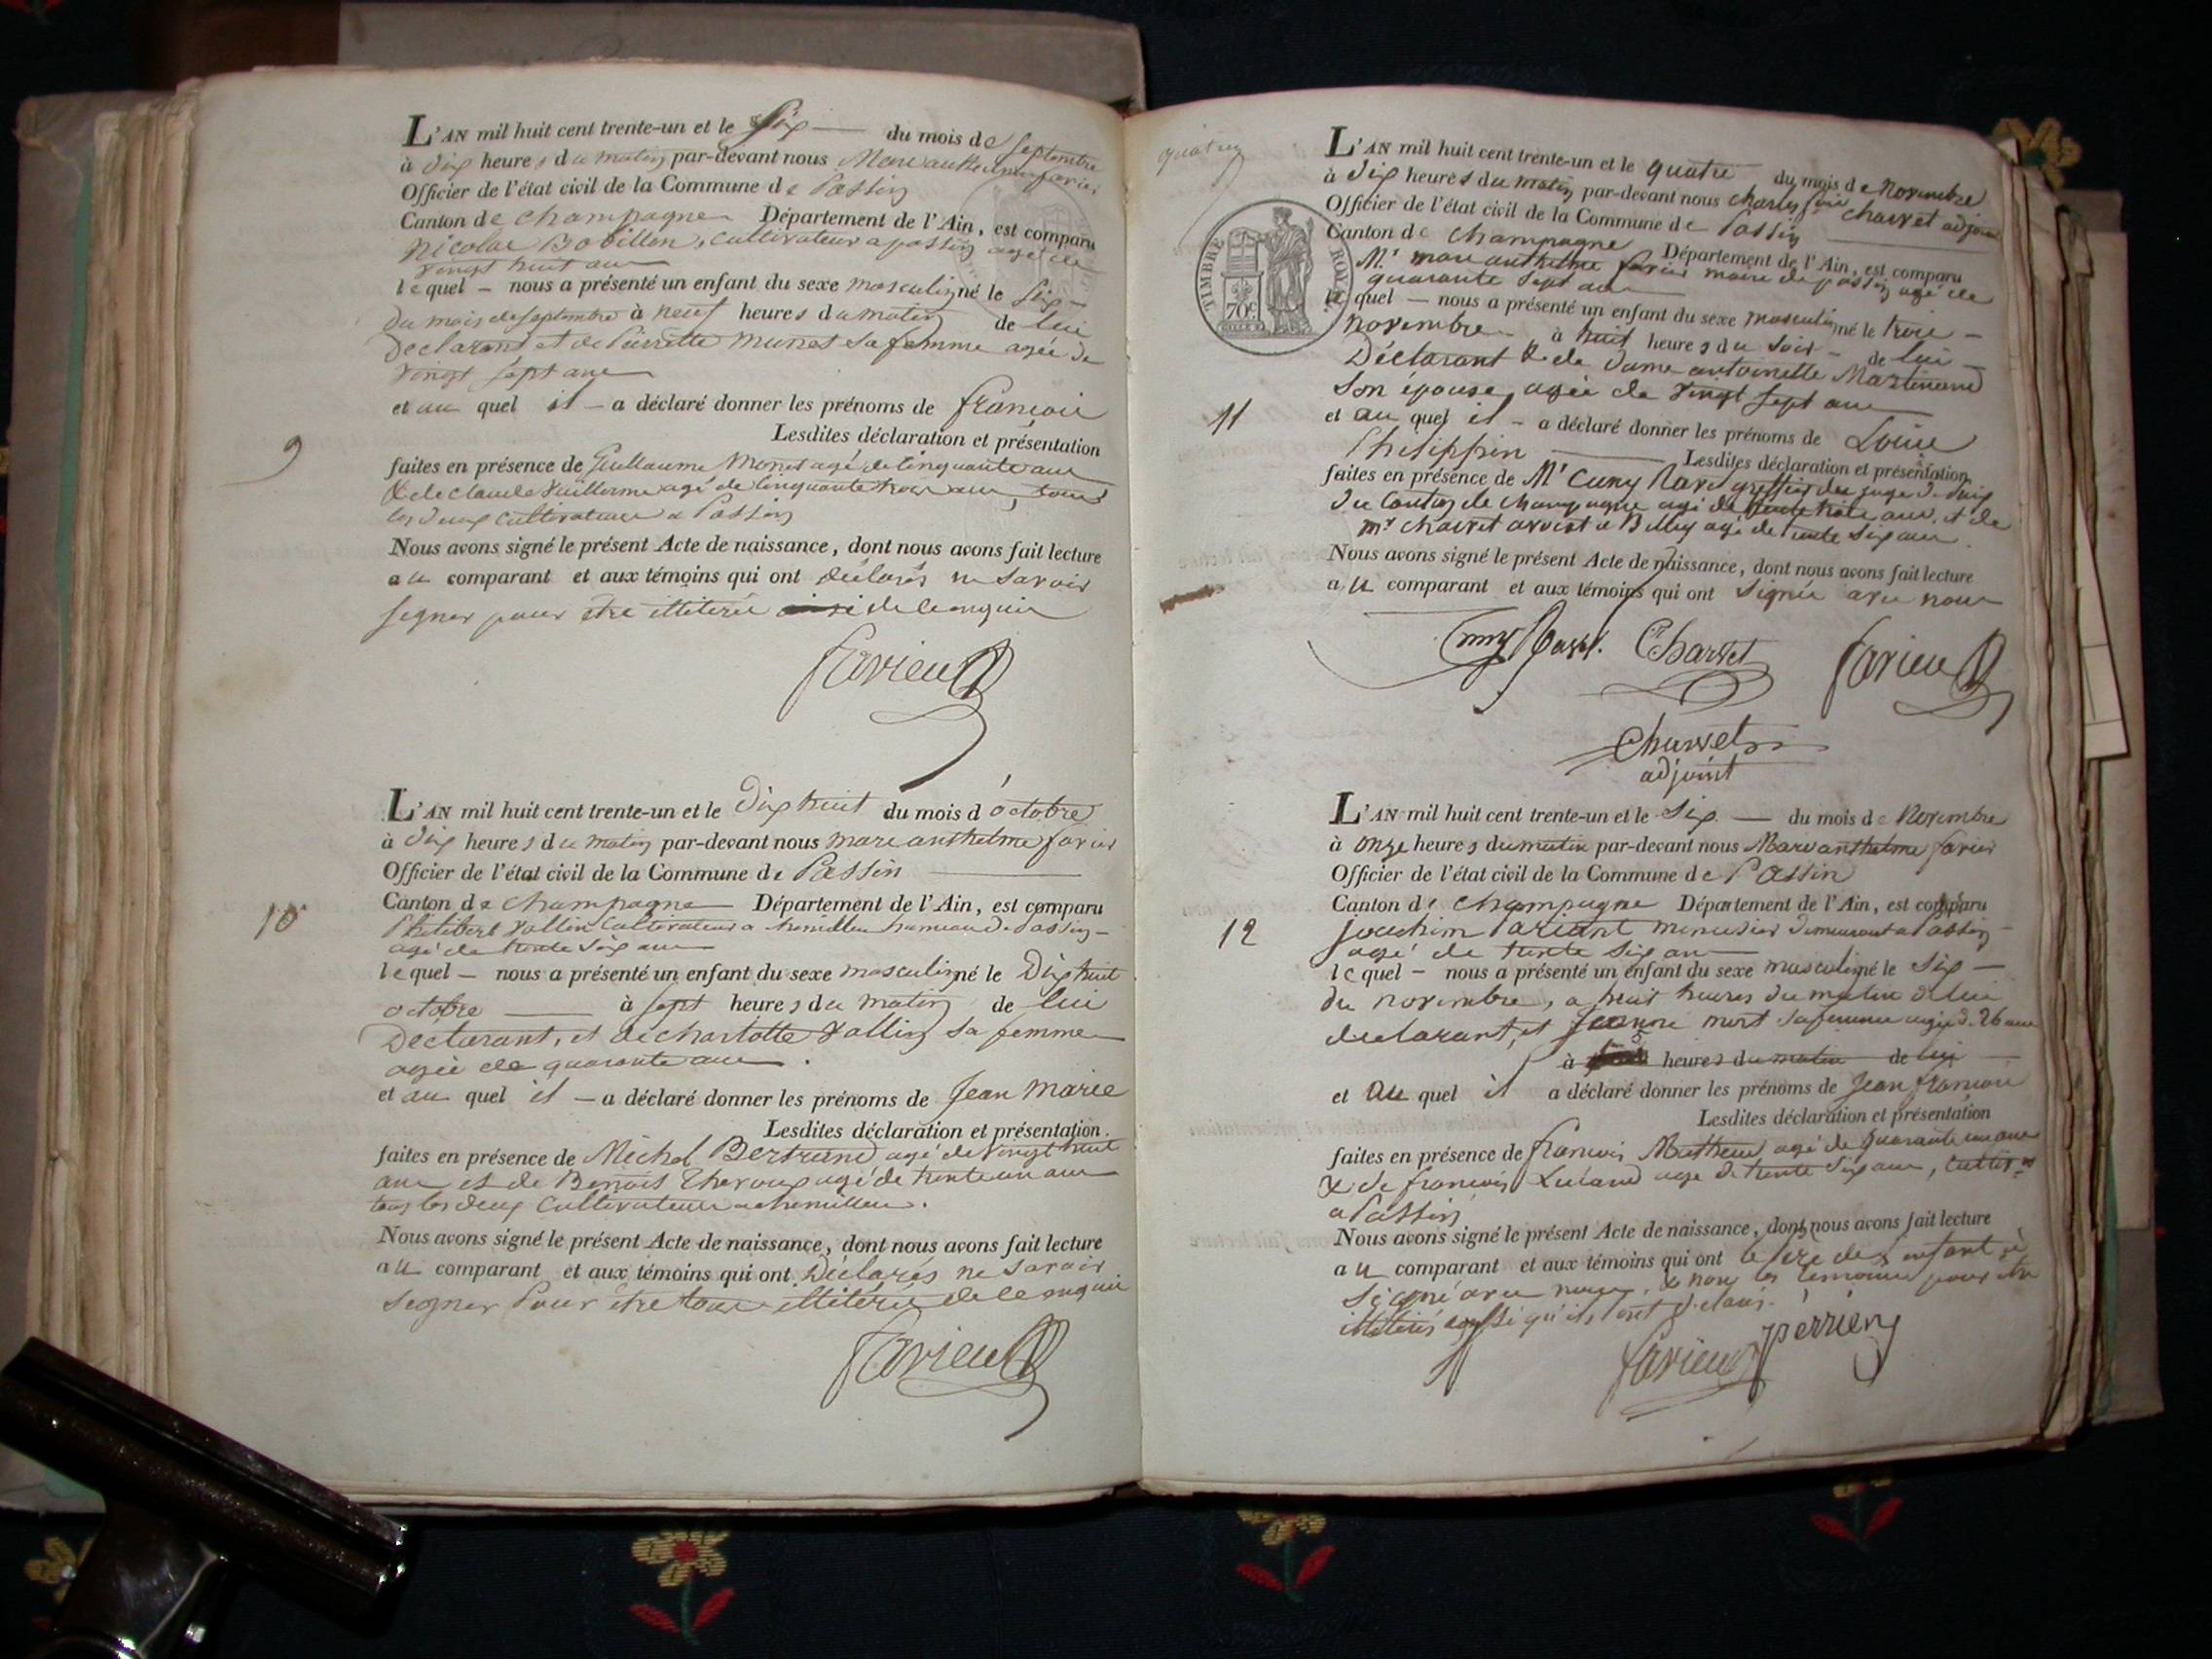 L'AN mil huit cent trente-un et le Six du mois de Septembre
à dix heures du matin par-devant nous Marc anthelme favier
Officier de l'état civil de la Commune de Passin
Canton de Champagne Département de l'Ain, est comparu
Nicolas Bobillon, cultivateur a passin agé de
vingt huit ans
lequel nous a présenté un enfant du sexe masculin né le Six
du mois de septembre à neuf heures du matin de lui
Déclarant et de Pierrette Munet sa femme agée de
vingt sept ans
et au quel il a déclaré donner les prénoms de françois
Lesdites déclaration et présentation
9
faites en présence de Guillaume Monet agé de Cinquante ans
& de claude Vuillerme agé de Cinquante trois ans, tous
les deux cultivateurs a Passin
Nous avons signé le présent Acte de naissance, dont nous avons fait lecture
au comparant et aux témoins qui ont déclarés ne savoir
signer pour être illiterés de ce enquis
favier
L'AN mil huit cent trente-un et le Dix huit du mois d'octobre
à dix heures du matin par-devant nous marc anthelme favier
Officier de l'état civil de la Commune de Passin
10
Canton de Champagne Département de l'Ain, est comparu
Philibert Vallin Cultivateur a hameau de Passin
agé de trente six ans
lequel nous a présenté un enfant du sexe masculin né le Dix huit
octobre à sept heures du matin de lui
Déclarant, et de charlotte Vallin sa femme
agée de quarante ans.
et au quel il a déclaré donner les prénoms de Jean Marie
Lesdites déclaration et présentation.
faites en présence de Michel Bertrand agé de vingt huit
ans et de Benoit agé de trente un ans
tous les deux Cultivateurs a
Nous avons signé le présent Acte de naissance, dont nous avons fait lecture
au comparant et aux témoins qui ont Déclarés ne savoir
Signer Pour être tous illiterés de ce enquis
favier
quatrieme
TIMBRE ROYAL
70c
L'AN mil huit cent trente-un et le quatre du mois de Novembre
à dix heures du matin par-devant nous charles charvet adjoint
Officier de l'état civil de la Commune de Passin
Canton de Champagne Département de l'Ain, est comparu
Mr marc anthelme favier maire de passin agé de
quarante sept ans
lequel nous a présenté un enfant du sexe masculin né le trois
novembre à huit heures du soir de lui
Déclarant & de Dame antoinette Martinand
Son épouse agée de vingt sept ans
11
et au quel il a déclaré donner les prénoms de Louis
Philippin Lesdites déclaration et présentation
faites en présence de Mr Cuny greffier du juge de paix
du Canton de Champagne agé de ans, et de
mr charvet avocat a Belley agé de trente six ans.
Nous avons signé le présent Acte de naissance, dont nous avons fait lecture
au comparant et aux témoins qui ont signés avec nous
Cuny Charvet favier
Charvet
adjoint
L'AN mil huit cent trente-un et le Six du mois de Novembre
à onze heures du matin par-devant nous Marc anthelme favier
Officier de l'état civil de la Commune de Passin
12
Canton de Champagne Département de l'Ain, est comparu
joachim menuisier demeurant a Passin
agé de trente six ans
lequel nous a présenté un enfant du sexe masculin né le Six
du novembre, a huit heures du matin de lui
declarant, et Jeanne mort sa femme agée d. 26 ans
à heures du matin de lui
et au quel il a déclaré donner les prénoms de Jean françois
Lesdites déclaration et présentation
faites en présence de françois Mathieu agé de quarante un ans
& de françois agé de trente six ans,
a Passin
Nous avons signé le présent Acte de naissance, dont nous avons fait lecture
au comparant et aux témoins qui ont le pere de l'enfant a
Signé avec nous, & non les temoins pour etre
illiterés aussi qu'ils ont déclaré.
favier